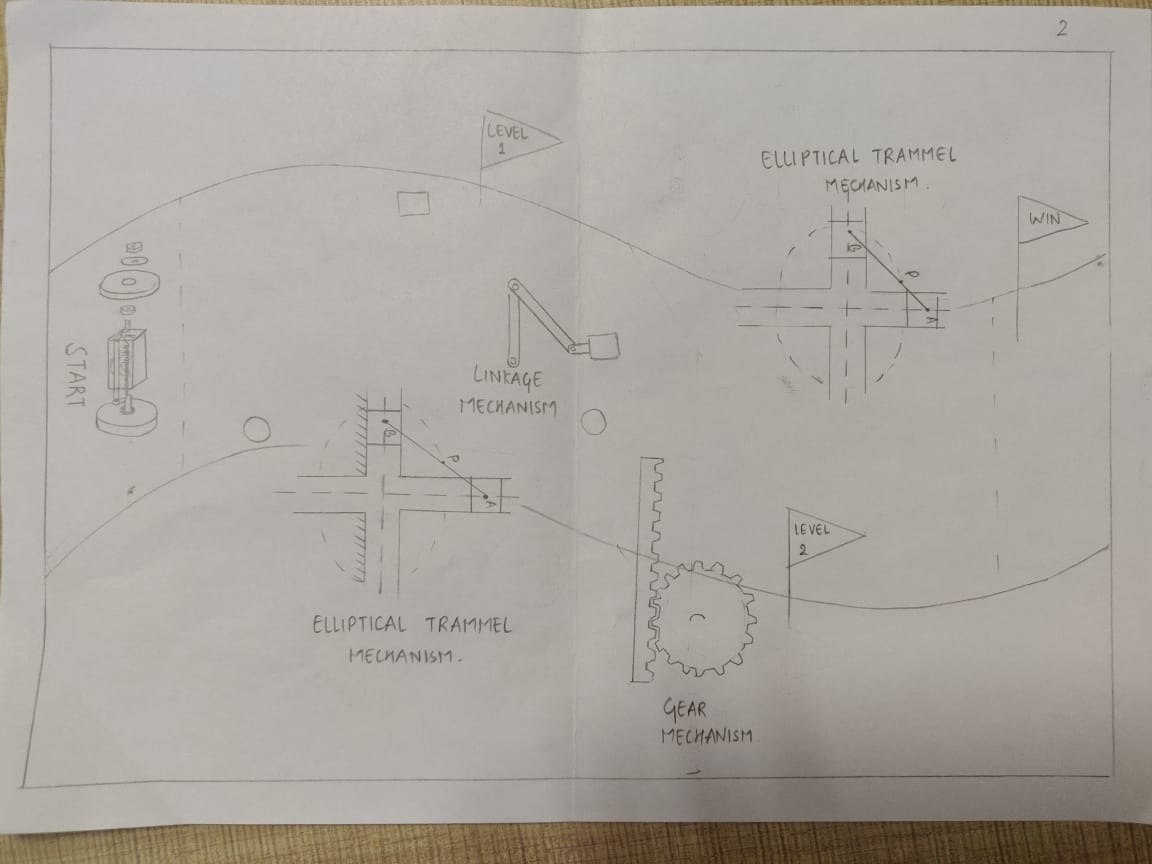 2
LEVEL
1
ELLIPTICAL TRAMMEL
MECHANISM.
WIN
B
P
A
START
LINKAGE
MECHANISM
B
P
A
LEVEL
2
ELLIPTICAL TRAMMEL
MECHANISM.
GEAR
MECHANISM